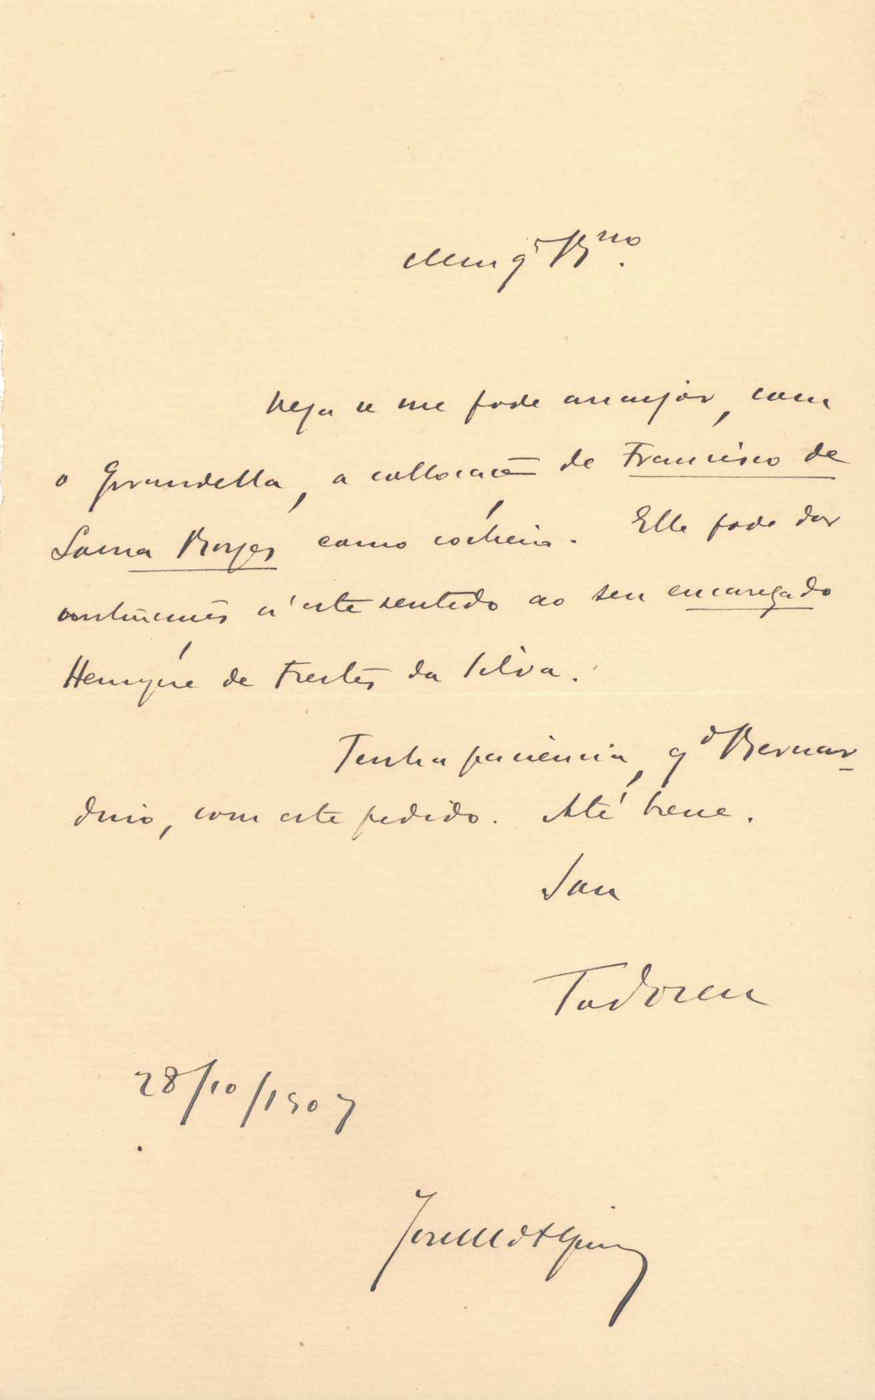 Meu q.º B.no
Veja se me pode arranjar, com
o Grandella, a collocação de Francisco de
Sousa Borges como cocheiro. Elle pode dar
instrucções n'este sentido ao seu encarregado
Henrique de Freitas da Silva.
Tenha paciencia, q.do Bernar-
dino, com este pedido. Até breve.
Sou
28/10/1907